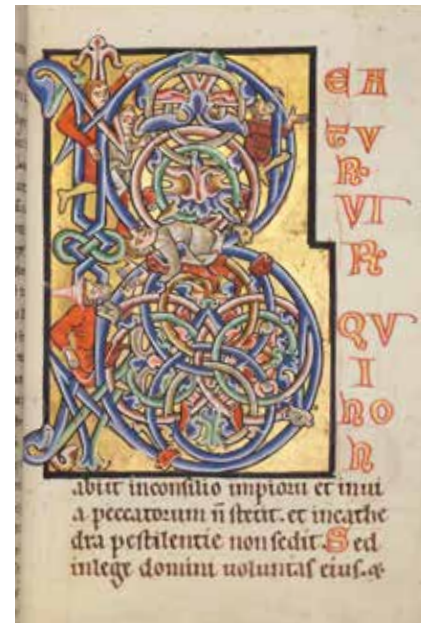 B
EA
TV
VI
R
QV
I
NO
N
abiit inconsilio impiorū et inui
a peccatorum n̄ stetit. et incathe
dra pestilentie non sedit. Sed
inlege domini uoluntas eius. &